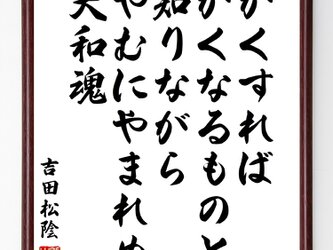 かくすれば
かくなるものと
知りながら
やむにやまれぬ
大和魂
吉田松陰